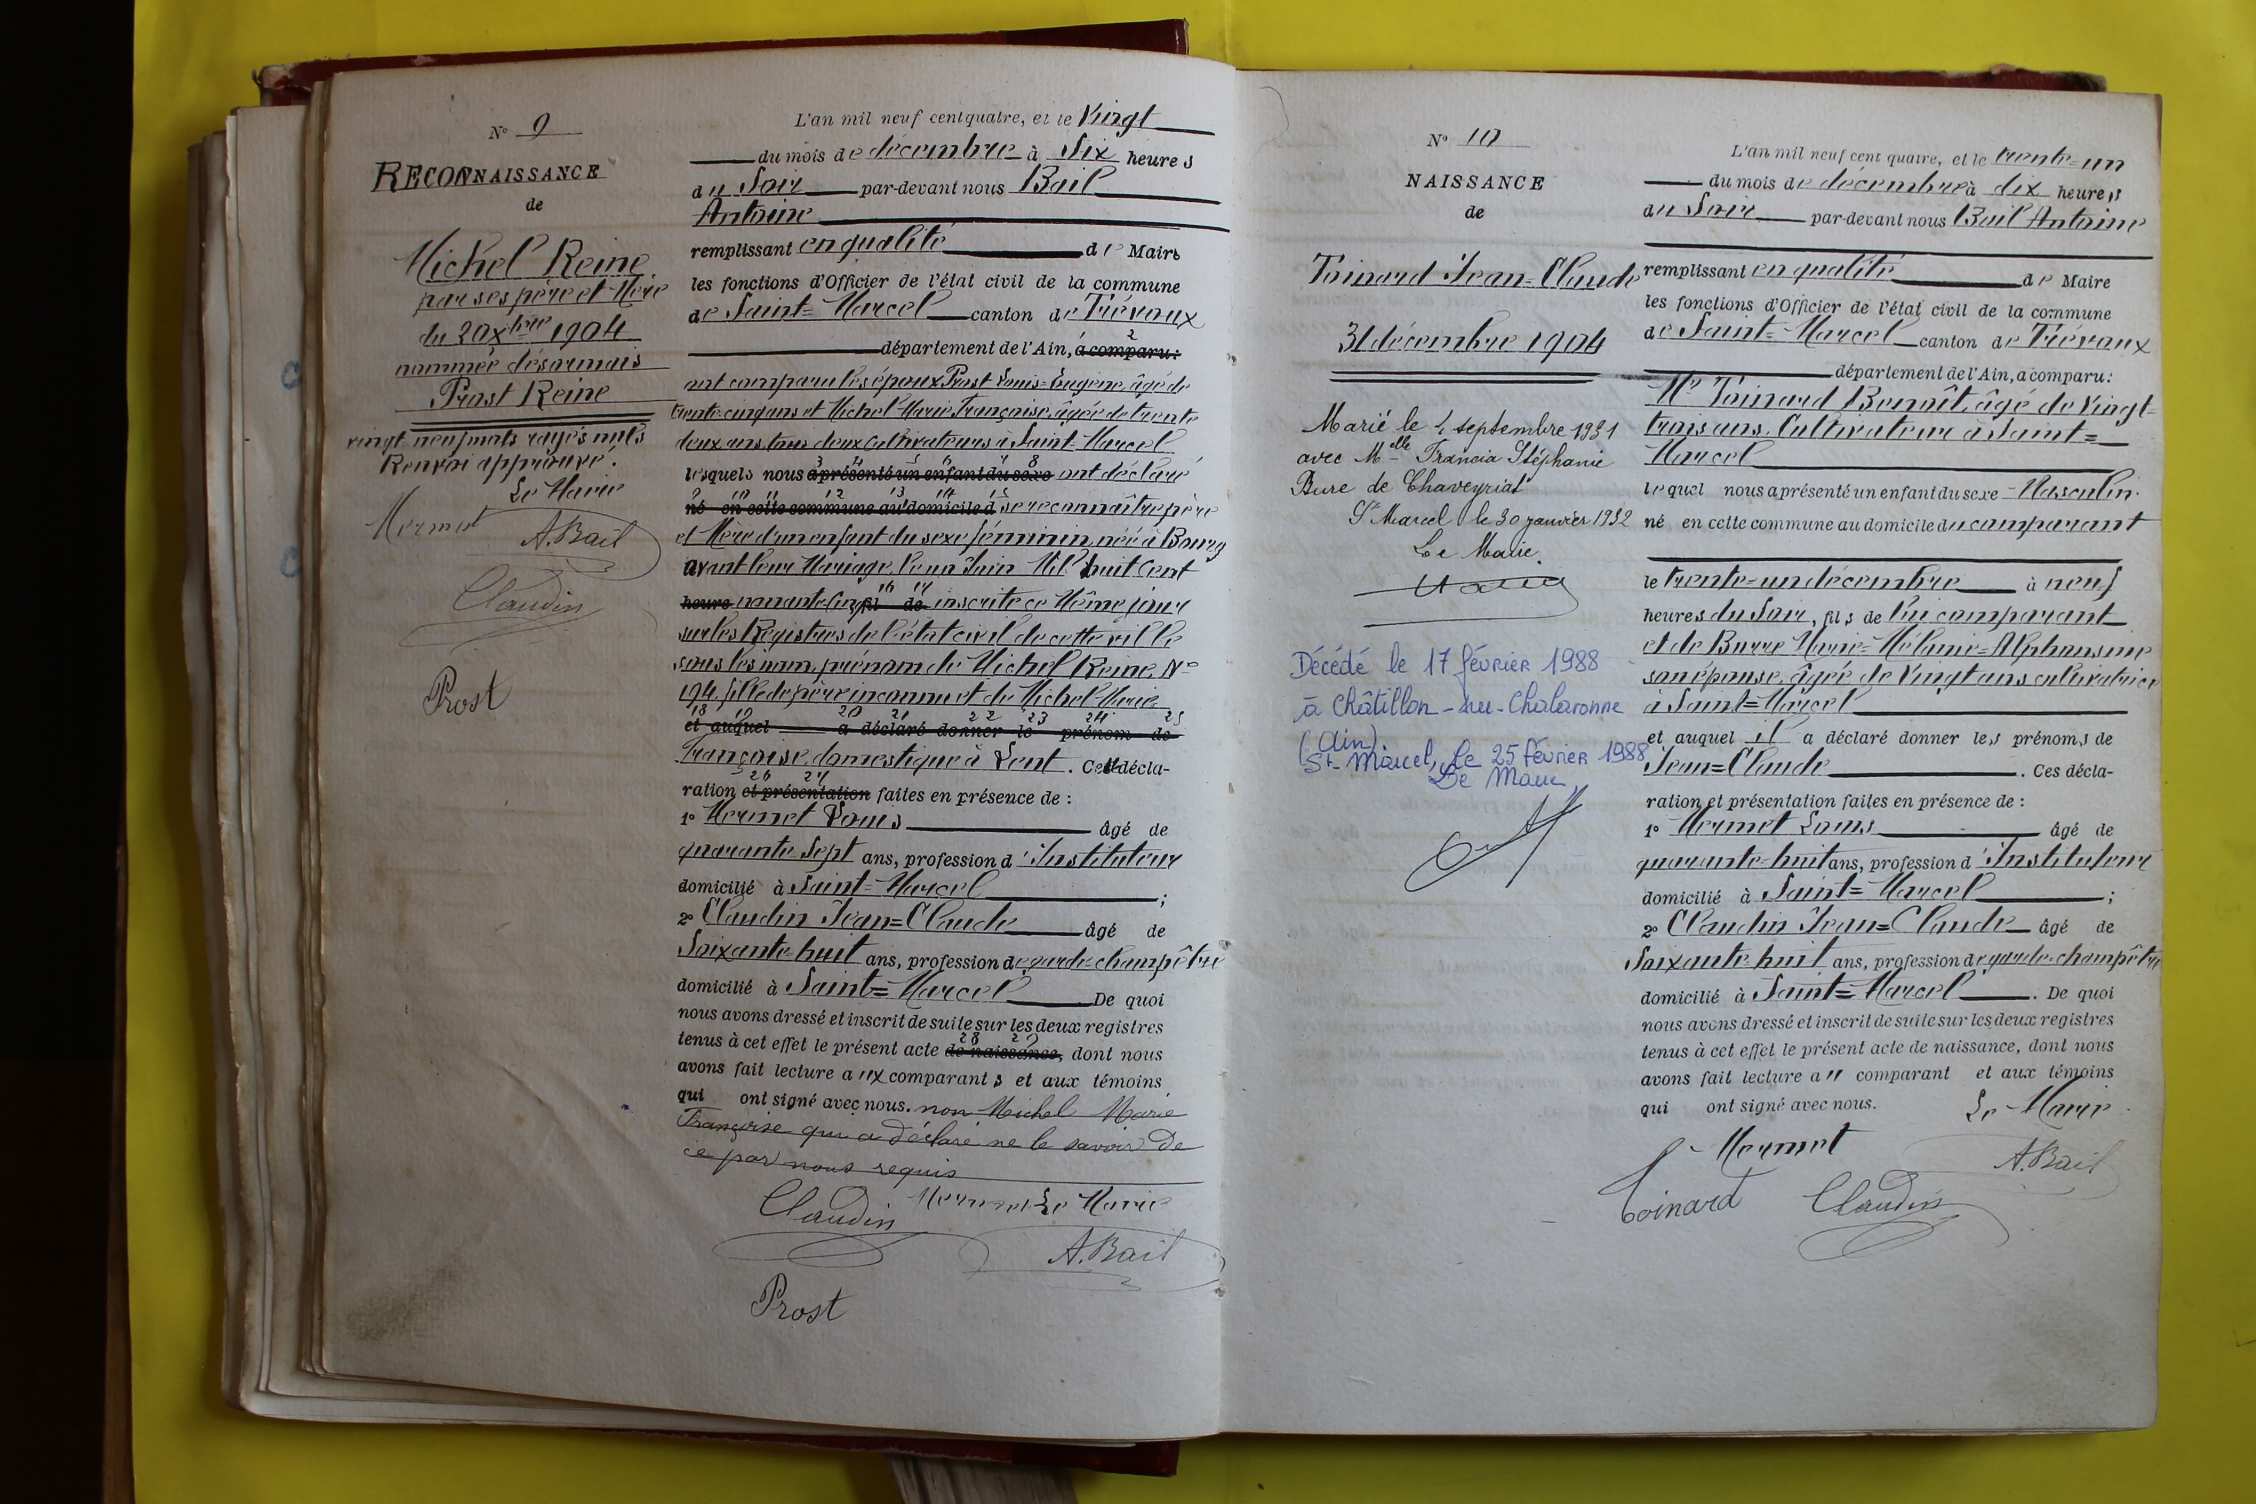 N° 9
RECONNAISSANCE
de
Michel Reine
par ses père et Mère
du 20 Xbre 1904
nommée désormais
Prost Reine
vingt neuf mots rayés nuls
Renvoi approuvé.
Le Maire
Mermet A. Bail
Claudin
Prost
L'an mil neuf cent quatre, et le Vingt
du mois de décembre à Six heures
du Soir par-devant nous Bail
Antoine
remplissant en qualité de Maire
les fonctions d'Officier de l'état civil de la commune
de Saint=Marcel canton de Trévoux
2
département de l'Ain, a comparu:
ont comparu les époux Prost Louis=Eugène, âgé de
trente cinq ans et Michel Marie Françoise, âgée de trente
deux ans tous deux Cultivateurs à Saint Marcel
3 4 5 6 7 8
lesquels nous a présenté un enfant du sexe ont déclaré
9 10 11 12 13 14 15
né en cette commune au domicile d se reconnaître père
et Mère d'un enfant du sexe féminin née à Bourg
avant leur Mariage le un Juin Mil huit Cent
16 17
heure nonante six fil de inscrite ce Même jour
sur les Registres de l'état civil de cette ville
sous les nom, prénom de Michel Reine, N°
194, fille de père inconnu et de Michel Marie
18 19 20 21 22 23 24 25
et auquel a déclaré donner le prénom de
Françoise, domestique à Lent. Cette décla-
26 27
ration et présentation faites en présence de :
1° Mermet Louis âgé de
quarante Sept ans, profession d'Instituteur
domicilié à Saint=Marcel ;
2° Claudin Jean=Claude âgé de
Soixante-huit ans, profession de garde-champêtre
domicilié à Saint=Marcel De quoi
nous avons dressé et inscrit de suite sur les deux registres
28 29
tenus à cet effet le présent acte de naissance, dont nous
avons fait lecture aux comparants et aux témoins
qui ont signé avec nous. non Michel Marie
Françoise qui a déclaré ne le savoir De
ce par nous requis
Claudin Mermet Le Maire
A. Bail
Prost
N° 10
NAISSANCE
de
Toinard Jean=Claude
31 décembre 1904
Marié le 4 septembre 1931
avec Melle Francia Stéphanie
Bure de Chaveyriat
St Marcel le 30 janvier 1932
Le Maire
Décédé le 17 février 1988
à Châtillon-sur-Chalaronne
(Ain).
St-Marcel, le 25 février 1988
Le Maire
L'an mil neuf cent quatre, et le trente=un
du mois de décembre à dix heures
du Soir par-devant nous Bail Antoine
remplissant en qualité de Maire
les fonctions d'Officier de l'état civil de la commune
de Saint=Marcel canton de Trévoux
département de l'Ain, a comparu:
Mr Toinard Benoît, âgé de Vingt=
trois ans, Cultivateur à Saint=
Marcel
lequel nous a présenté un enfant du sexe Masculin.
né en cette commune au domicile du comparant
le trente=un décembre à neuf
heures du Soir, fils de lui comparant
et de Burre Marie=Mélanie=Alphonsine
son épouse, âgée de Vingt ans cultivatrice
à Saint=Marcel
et auquel il a déclaré donner les prénoms de
Jean=Claude. Ces décla-
ration et présentation faites en présence de :
1° Mermet Louis âgé de
quarante-huit ans, profession d'Instituteur
domicilié à Saint=Marcel ;
2° Claudin Jean=Claude âgé de
Soixante-huit ans, profession de garde-champêtre
domicilié à Saint=Marcel. De quoi
nous avons dressé et inscrit de suite sur les deux registres
tenus à cet effet le présent acte de naissance, dont nous
avons fait lecture au comparant et aux témoins
qui ont signé avec nous. Le Maire
Mermet A. Bail
Toinard Claudin